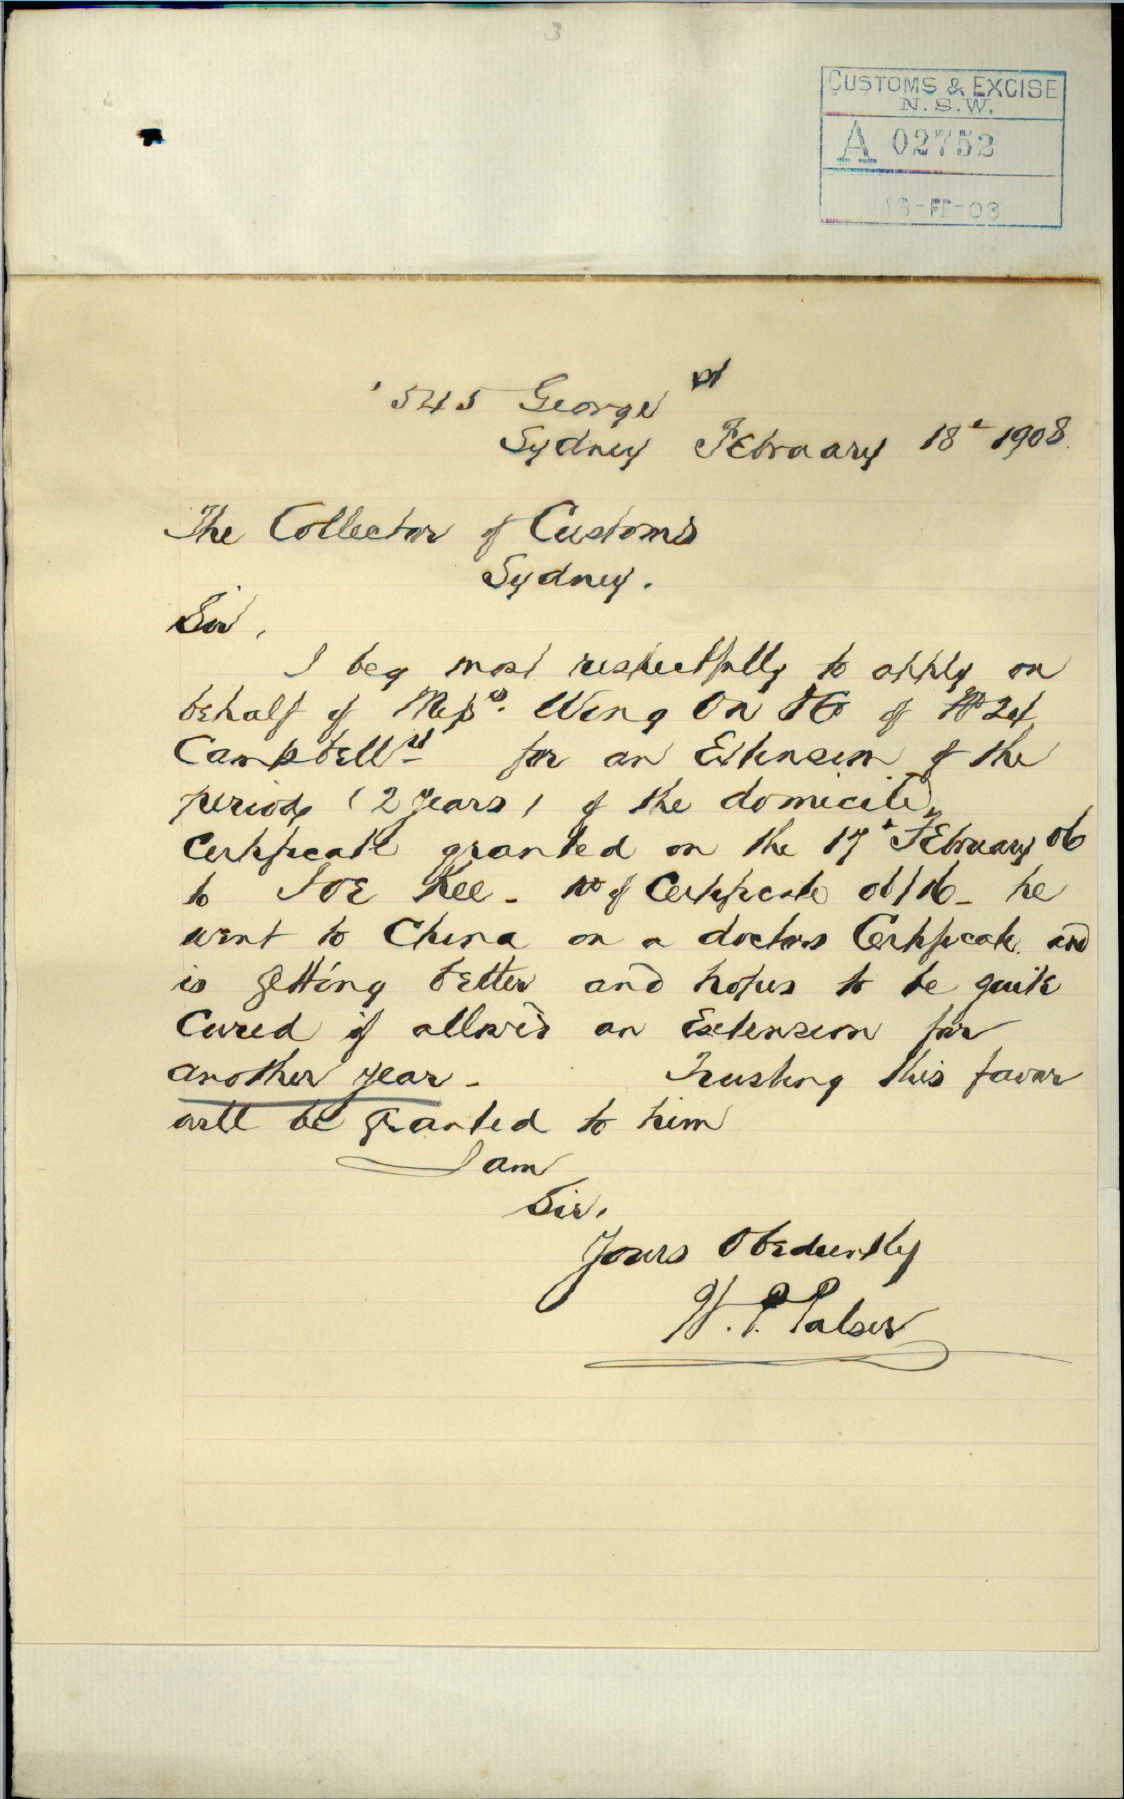 3
CUSTOMS & EXCISE
N.S.W.
A 02752
545 George St
Sydney February 18th 1908.
The Collector of Customs
Sydney.
Sir,
I beg most respectfully to apply on
behalf of Messrs. Wing On &Co of No 24
Campbell St for an Extension of the
period (2 years) of the domicile
Certificate granted on the 17th February 06
to Joe Kee - No of Certificate 06/16 - he
went to China on a doctors Certificate and
is getting better and hopes to be quite
Cured if allowed an Extension for
another year - Trusting this favor
will be granted to him
I am
Sir.
Yours Obediently
W. P. Palser